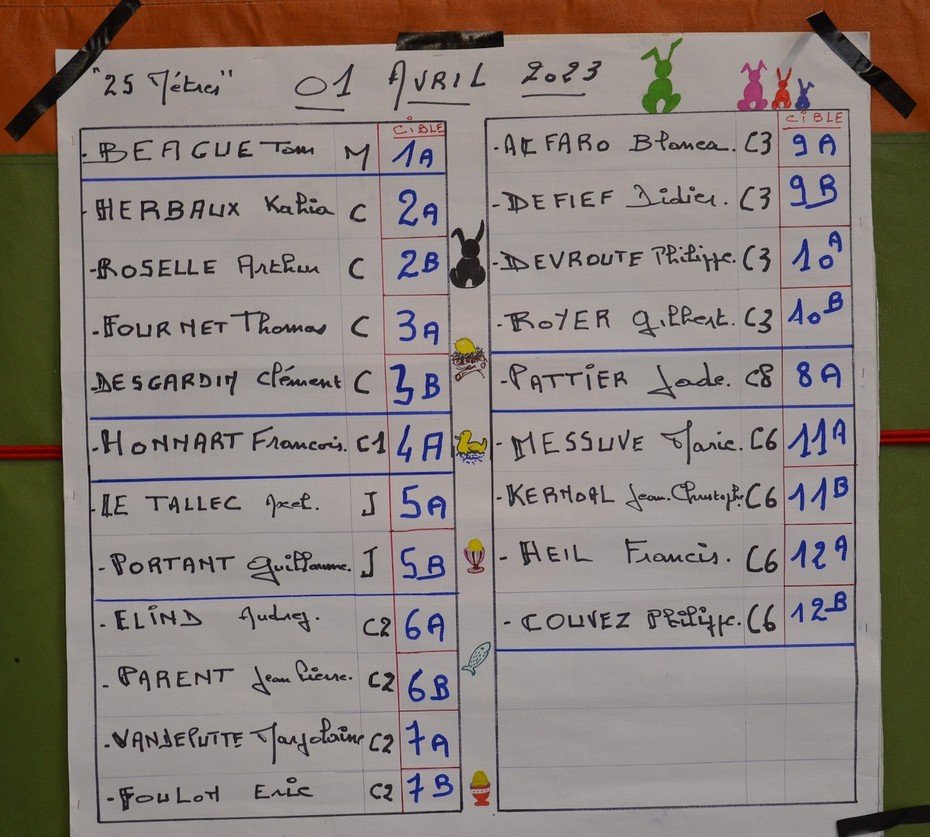 "25 Mètres" 01 AVRIL 2023
CIBLE
- BEAGUE Tom M 1A
- HERBAUX Kahia C 2A
- ROSELLE Arthur C 2B
- FOURNET Thomas C 3A
- DESGARDIN Clément C 3B
- HONNART Francois. C1 4A
- LE TALLEC Axel. J 5A
- PORTANT Guillaume. J 5B
- ELIND Audrey. C2 6A
- PARENT Jean Pierre. C2 6B
- VANDEPUTTE Marjolaine C2 7A
- FOULON Eric C2 7B
CIBLE
- ALFARO Blanca. C3 9A
- DEFIEF Didier. C3 9B
- DEVROUTE Philippe. C3 10A
- ROYER Gilbert. C3 10B
- PATTIER Jade. C8 8A
- MESSUVE Marie. C6 11A
- KERMOAL Jean.Christophe C6 11B
- HEIL Francis. C6 12A
- COUVEZ Philippe. C6 12B